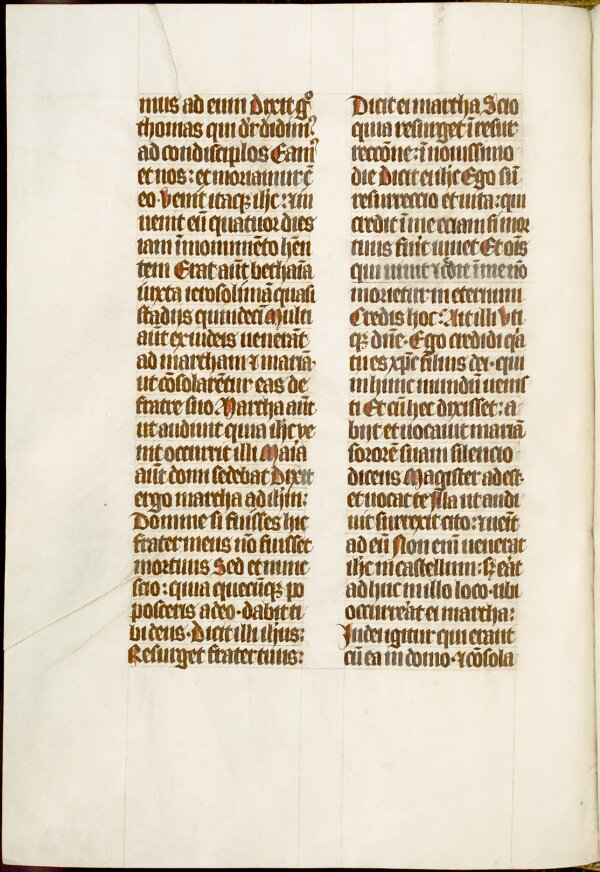 mus ad eum Dixit gͦ
thomas qui dr̄ didimꝰ
ad condisciplos Eamꝰ
et nos: et moriamur cū
eo. Venit itaqꝫ ihc: ⁊ in
uenit eū quatuor dies
iam ī monumēto hēn
tem Erat aūt bethaīa
iuxta ierosolimā quasi
stadijs quindecī Multi
aūt ex iudeis uenerāt
ad martham ⁊ mariā.
ut cōsolarētur eas de
fratre suo Martha aūt
ut audiuit quia ihc ve
nit occurrit illi Maīa
aūt domi sedebat Dixit
ergo martha ad ihm:
Domine si fuisses hic
frater meus nō fuisset
mortuus Sed et nunc
scio: quia quecūqꝫ po
posceris a deo. dabit ti
bi deus. Dicit illi ihus:
Resurget frater tuus:
Dicit ei martha Scio
quia resurget ī resur
reccōne: ī nouissimo
die Dicit ei ihc Ego sū
resurreccio et uita: qui
credit ī me eciam si mor
tuus fūit uiuet Et oīs
qui uiuit ⁊ cͬdit ī me nō
morietur in eternum
Credis hoc: Ait illi Vti
qꝫ dn̄e. Ego credidi qꝛa
tu es xp̄c filius dei. qui
in hunc mundū uenis
ti Et cū hec dixisset: a
bijt et uocauit mariā
sororē suam silencio
dicens Magister adest.
et uocat te Illa ut audi
uit surrexit cito: ⁊ ueīt
ad eū Non enī uenerat
ihc in castellum: sꝫ eāt
adhuc in illo loco. ubi
occurreāt ei martha:
Iudei igitur qui erant
cū ea in domo. ⁊ cōsola